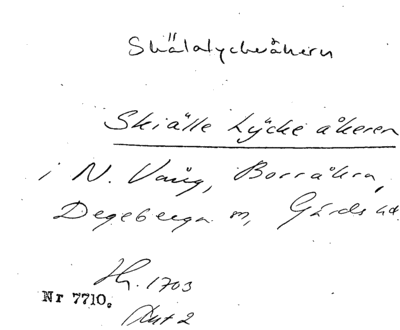 Skälalyckeåkern
Skiälle Lÿcke åkeren
i N. Vång, Borråkra,
Degeberga sn, Gärds hd.
Hr. 1703
Nr 7710.
Akt 2